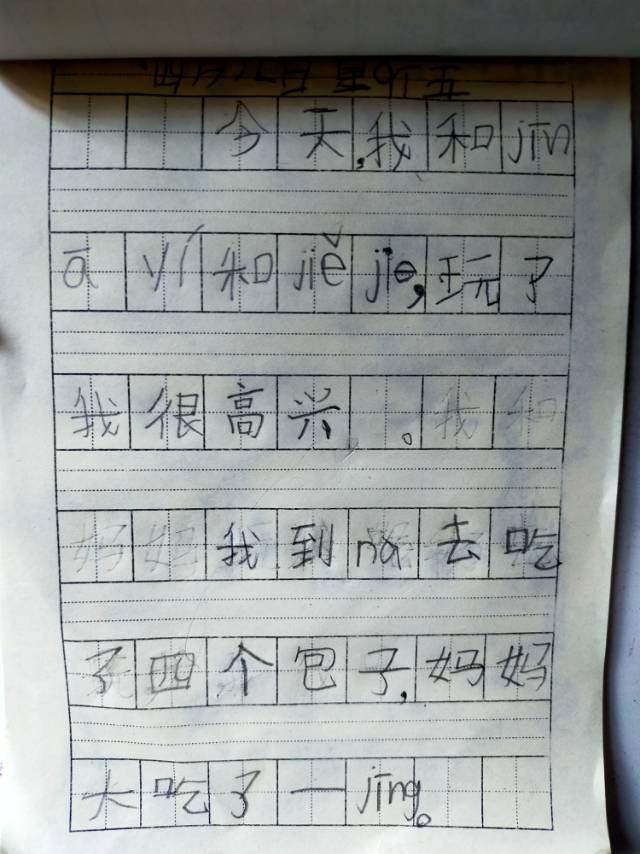 四月九日星期五
今天,我和jīn
ā yí和jiě jie,玩了
我很高兴。我和
妈妈我到na去吃
了四个包子,妈妈
大吃了一jīng。